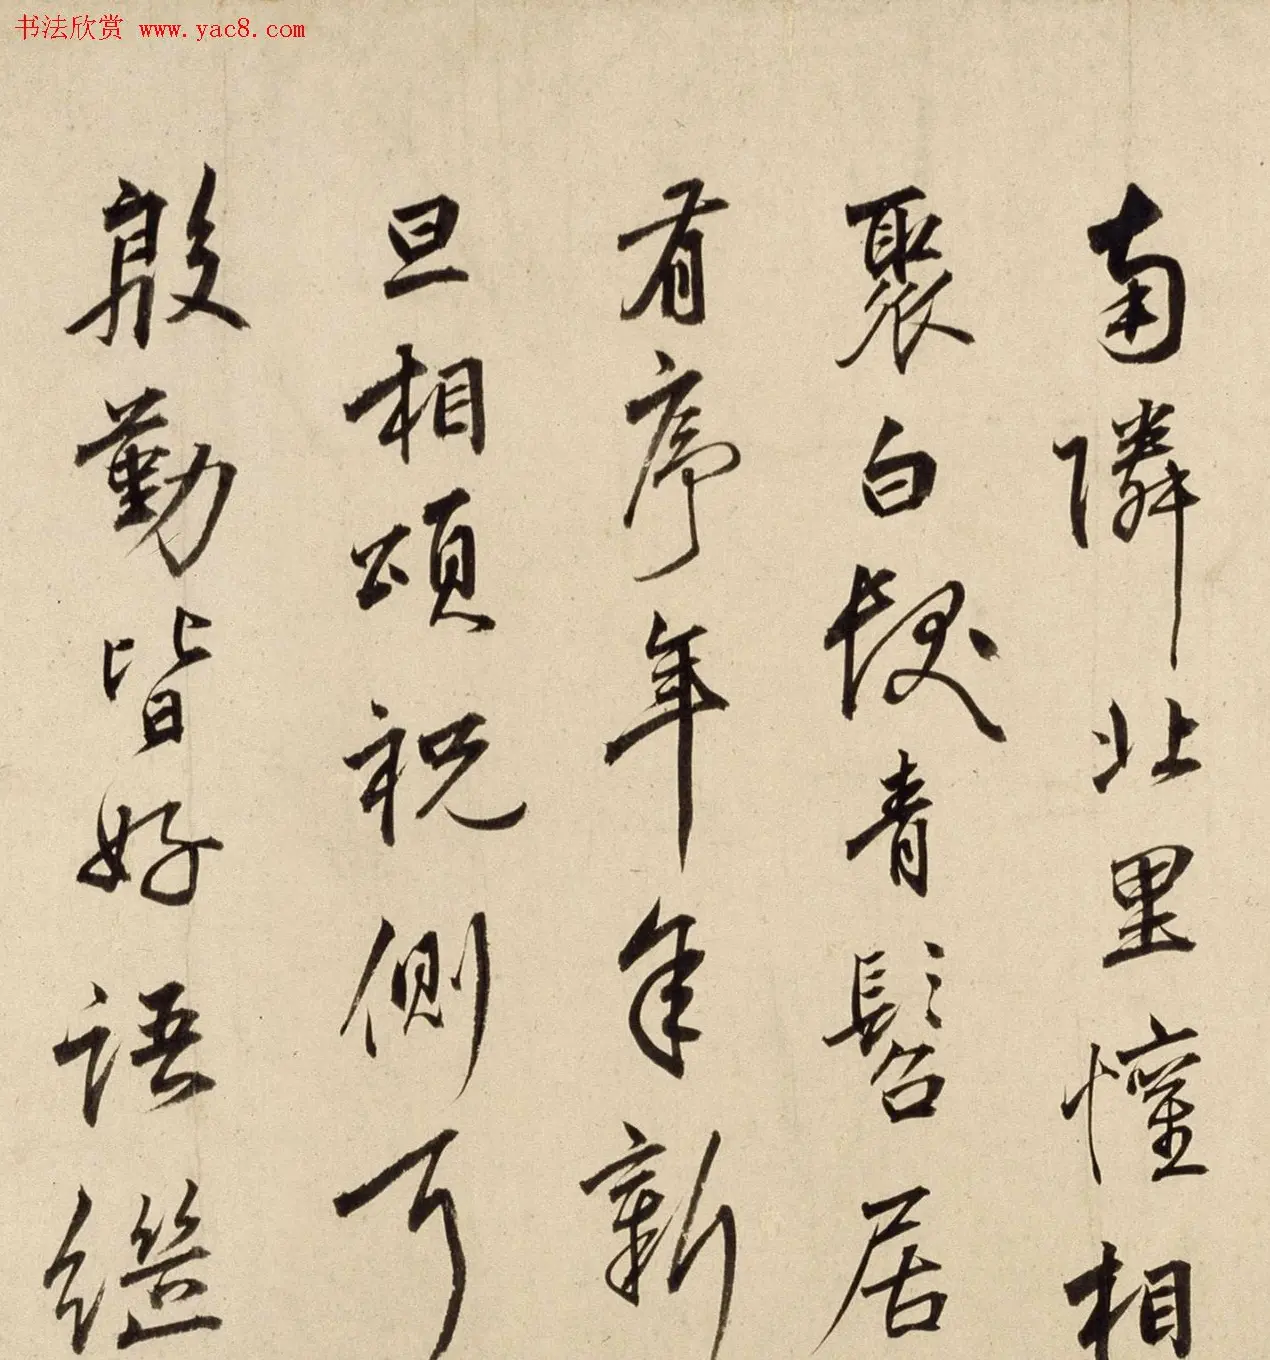 书法欣赏 www.yac8.com
南隣北里懽相
聚白髮青髫居
有序年年新
旦相頌祝側耳
殷勤皆好語繼